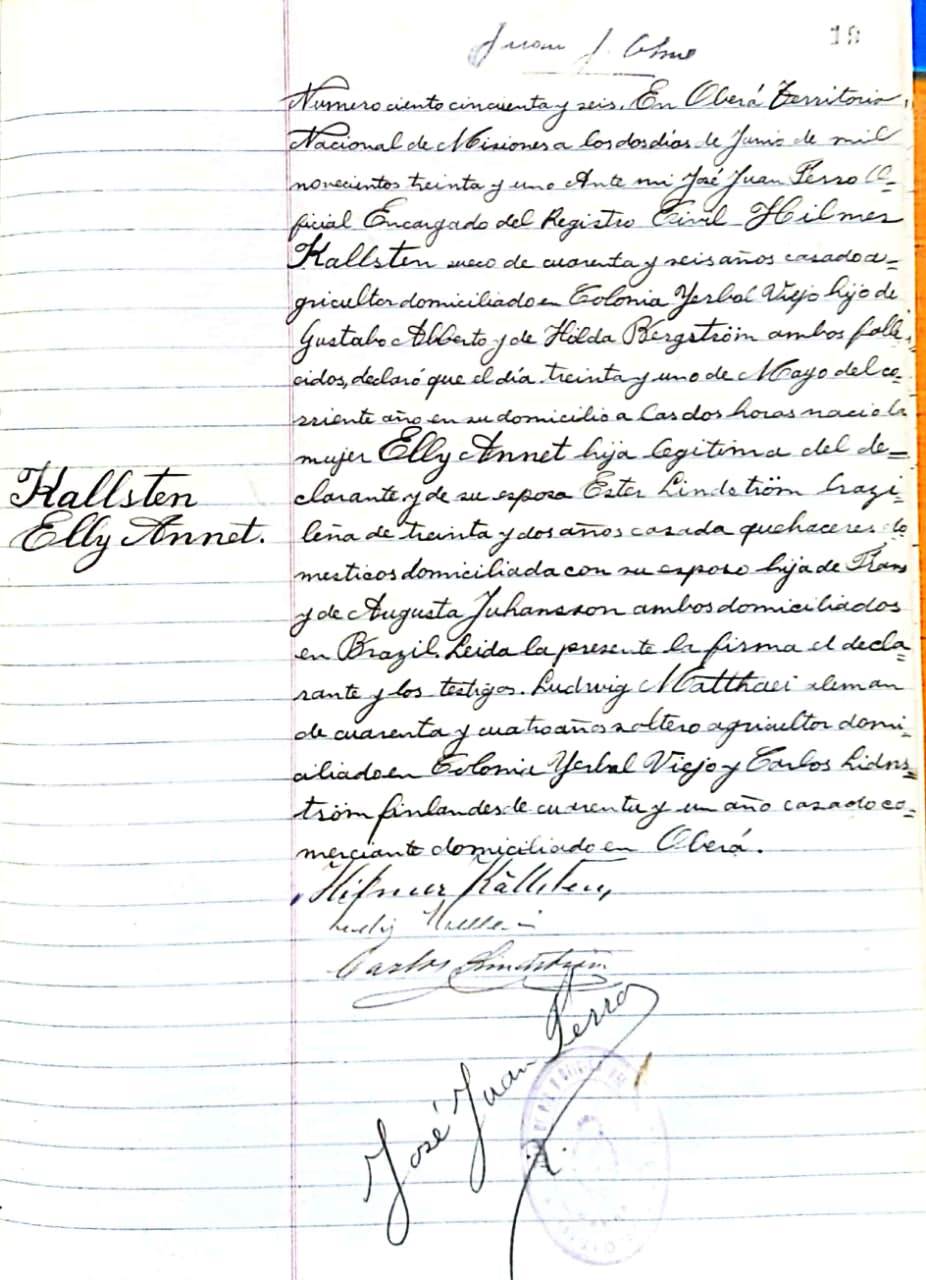 18
Juan J.
Numero ciento cincuenta y seis. En Oberá Territorio
Nacional de Misiones a los dos días de Junio de mil
novecientos treinta y uno Ante mi José Juan Ferro O=
ficial Encargado del Registro Civil Hilmer
Kallsten sueco de cuarenta y seis años casado a=
gricultor domiciliado en Colonia Yerbal Viejo hijo de
Gustabo Alberto y de Hilda Bergström ambos falle=
cidos, declaró que el día treinta y uno de Mayo del co=
rriente año en su domicilio a las dos horas nacio la
mujer Elly Annet hija legitima del de=
clarante y de su esposa Ester Lindström brazi=
Kallsten
leña de treinta y dos años casada quehaceres do
Elly Annet.
mesticos domiciliada con su esposo hija de Frans
y de Augusta Juhansson ambos domiciliados
en Brazil. Leida la presente la firma el decla=
rante y los testigos. Ludwig Matthaei aleman
de cuarenta y cuatro años soltero agricultor domi=
ciliado en Colonia Yerbal Viejo y Carlos Lidns=
tröm finlandes de cuarenta y un año casado co=
merciante domiciliado en Oberá.
Hilmer Källsten
Carlos Lindström
José Juan Ferro